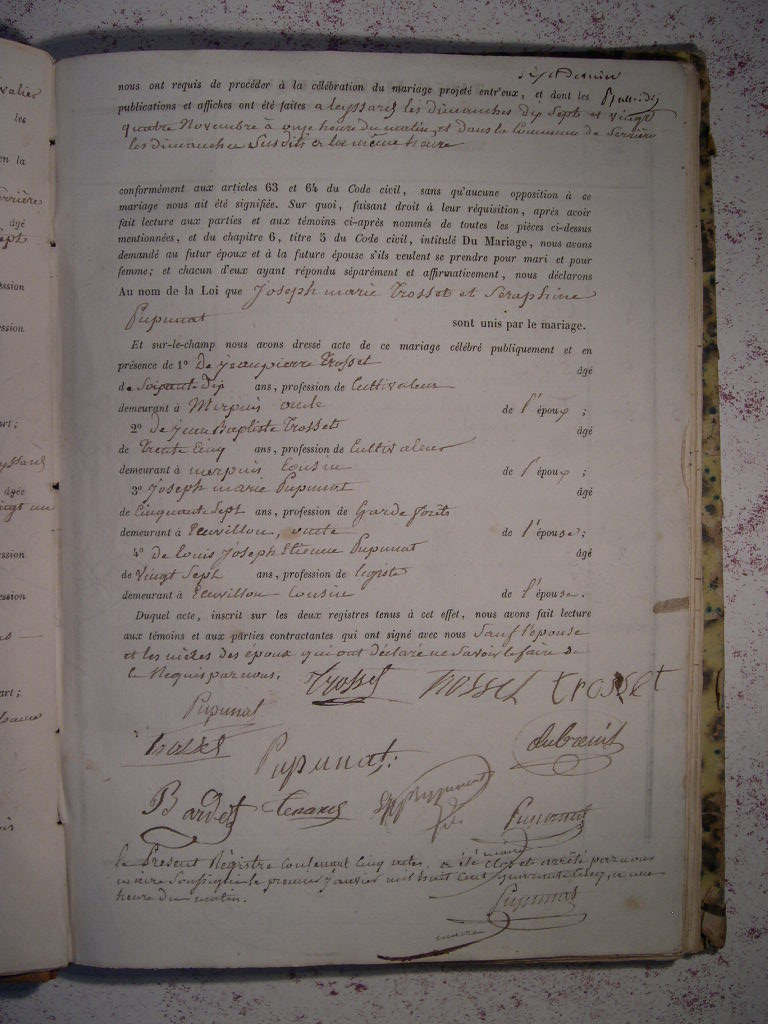 nous ont requis de procéder à la célébration du mariage projeté entr'eux, et dont les
publications et affiches ont été faites a leyssard les dimanches dix Sept et vingt
quatre Novembre à onze heure du matin, et dans la Commune de Serrière
les dimanches Susdits et la même heure
conformément aux articles 63 et 64 du Code civil, sans qu'aucune opposition à ce
mariage nous ait été signifiée. Sur quoi, faisant droit à leur réquisition, après avoir
fait lecture aux parties et aux témoins ci-après nommés de toutes les pièces ci-dessus
mentionnées, et du chapitre 6, titre 5 du Code civil, intitulé Du Mariage, nous avons
demandé au futur époux et à la future épouse s'ils veulent se prendre pour mari et pour
femme; et chacun d'eux ayant répondu séparément et affirmativement, nous déclarons
Au nom de la Loi que Joseph marie Trosset et Séraphine
Pupunat sont unis par le mariage.
Et sur-le-champ nous avons dressé acte de ce mariage célébré publiquement et en
présence de 1º De jean pierre Trosset âgé
de Soixante dix ans, profession de Cultivateur
demeurant à Merpuis oncle de l'époux ;
2º de jean Baptiste Trosset âgé
de Trente Cinq ans, profession de Cultivateur
demeurant à merpuis Cousin de l'époux ;
3º Joseph marie Pupunat âgé
de Cinquante Sept ans, profession de Garde forêts
demeurant à oncle de l'épouse;
4º de Louis Joseph Etienne Pupunat âgé
de Vingt Sept ans, profession de
demeurant à Cousin de l'épouse.
Duquel acte, inscrit sur les deux registres tenus à cet effet, nous avons fait lecture
aux témoins et aux parties contractantes qui ont signé avec nous Sauf l'épouse
et les mères des époux qui ont déclaré ne Savoir le faire de
le Requis par nous. Trosset trosset trosset
Pupunat
trosset Pupunat
Bardet
Pupunat
maire
le Présent Régistre Contenant Cinq actes, a été Clos et arrêté par nous
maire Soussigné le premier janvier mil huit Cent quarante Cinq, a une
heure du matin.
Pupunat
maire